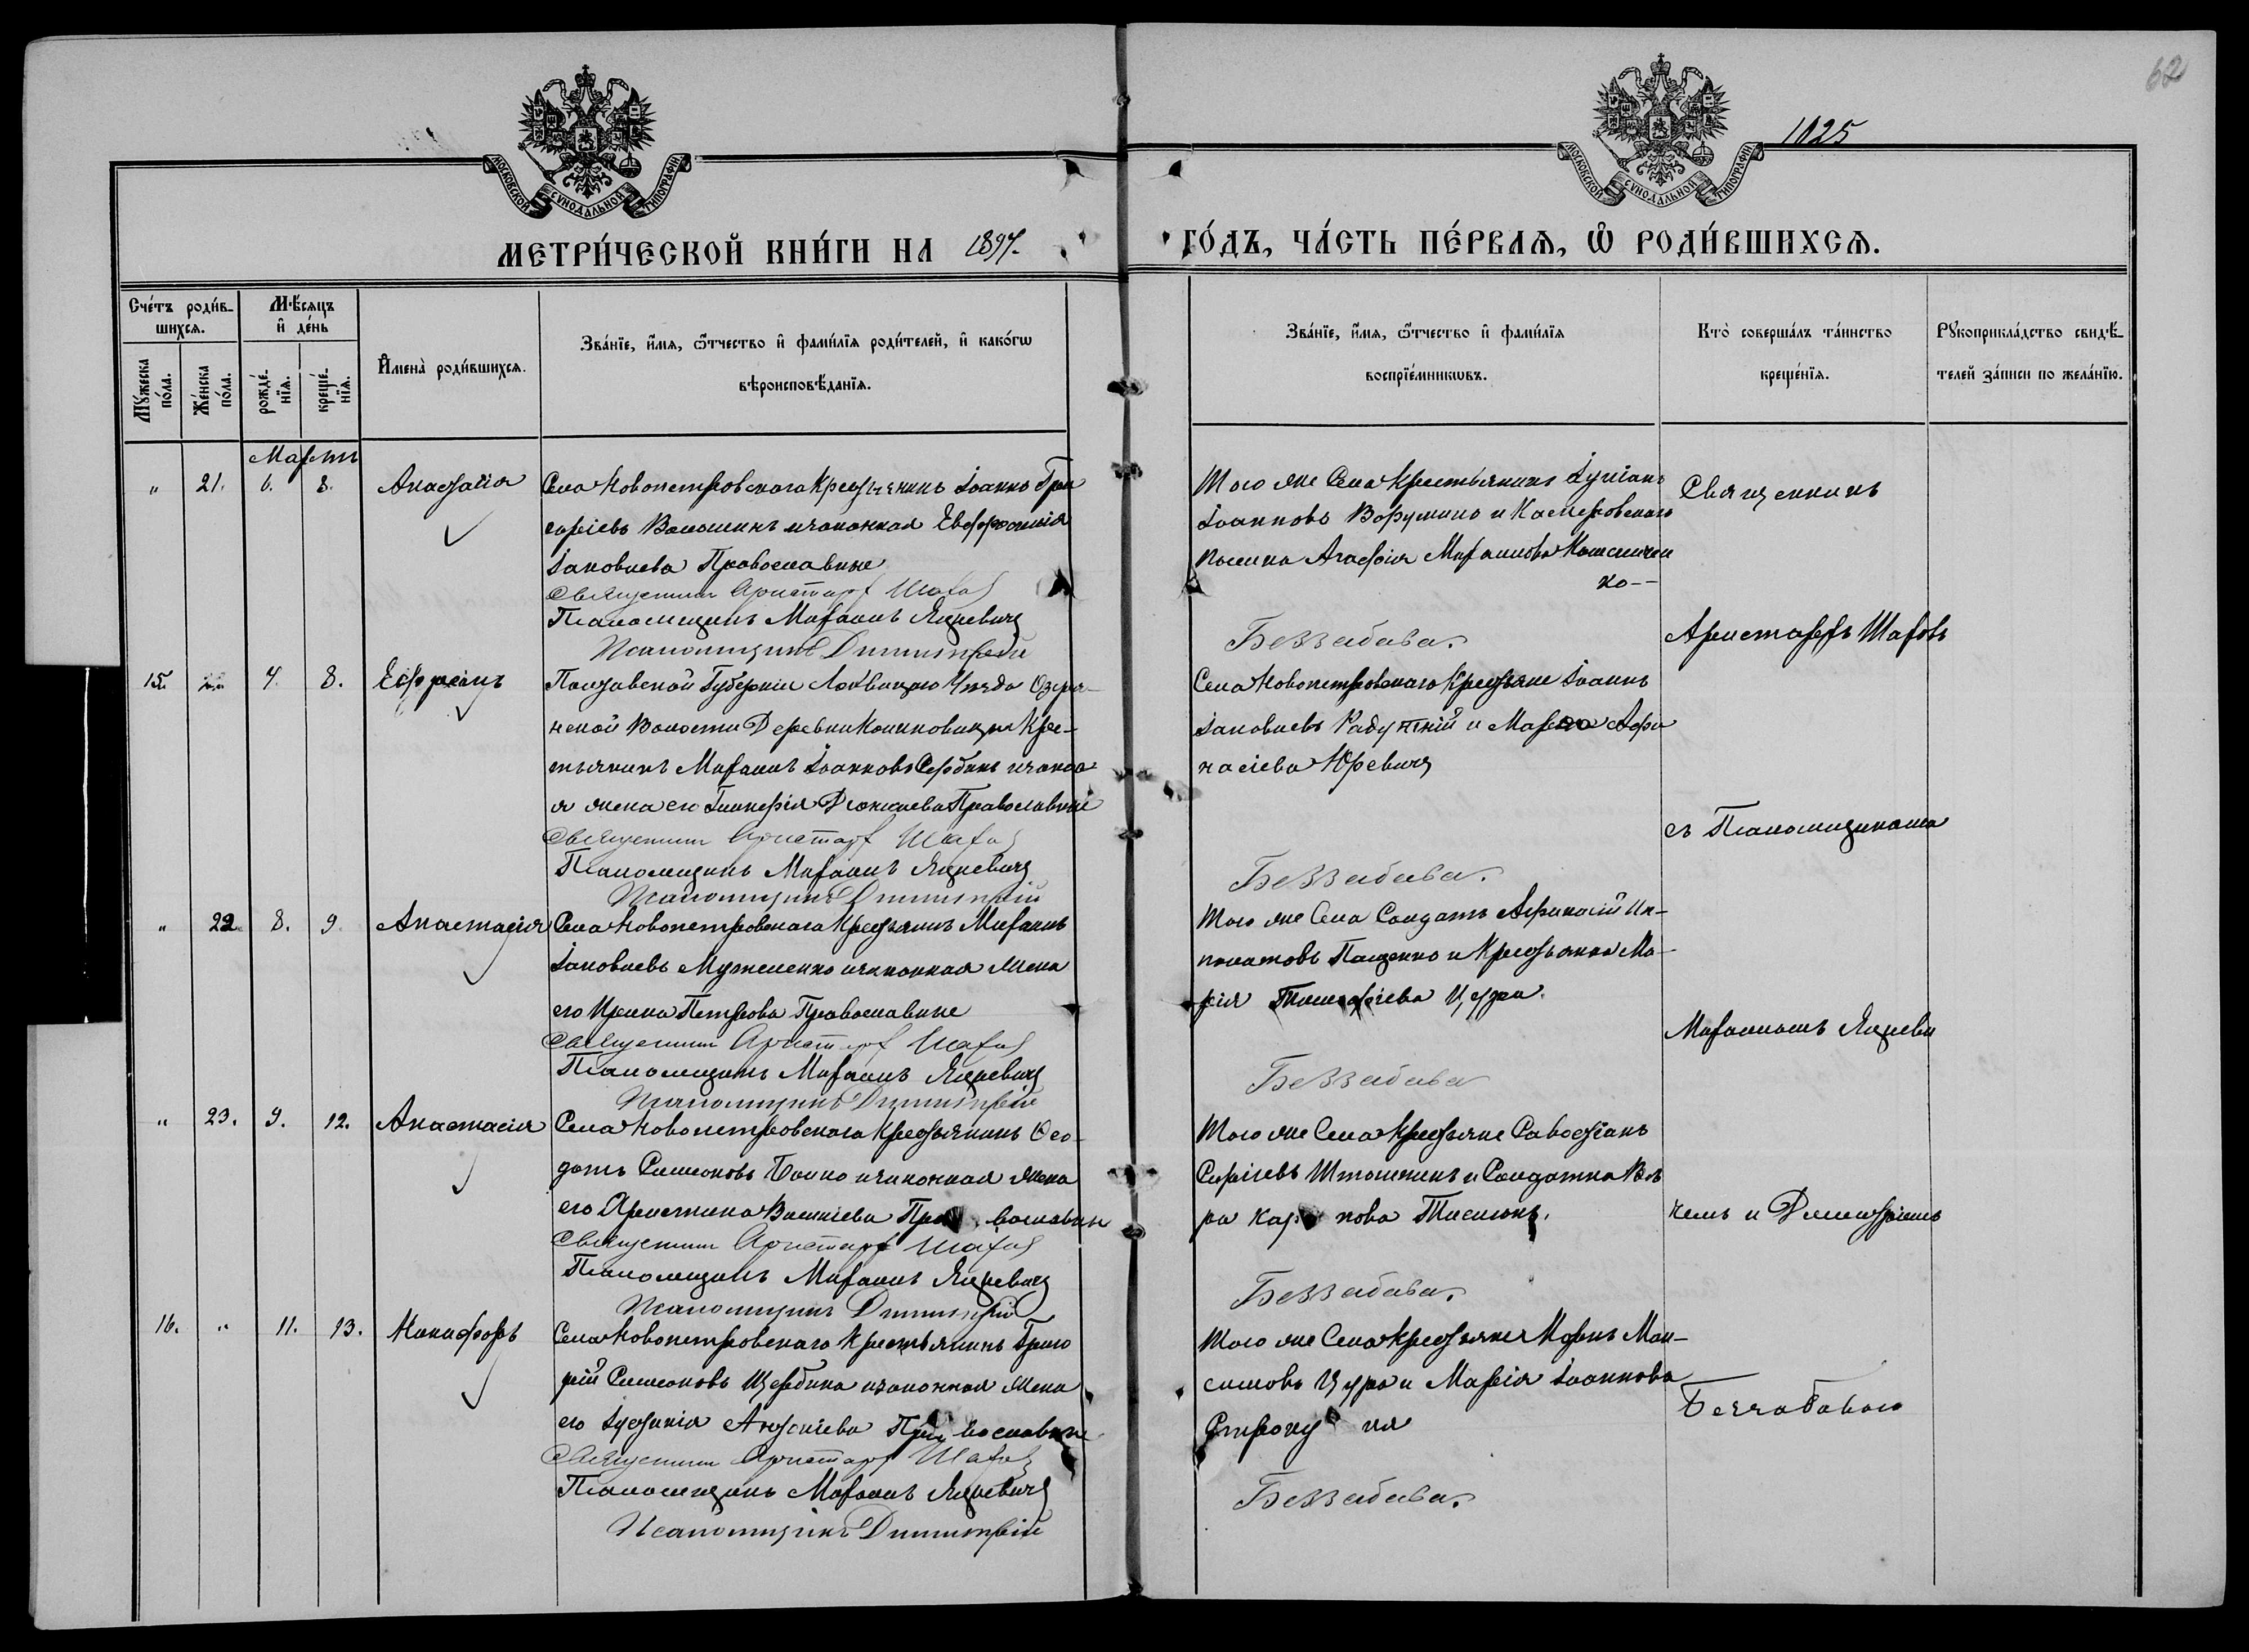 62
1025
МОСКОВСКОЙ СѴНОДАЛЬНОЙ ТИПОГРАФІИ
МОСКОВСКОЙ СѴНОДАЛЬНОЙ ТИПОГРАФІИ
МЕТРИ́ЧЕСКОЙ КНИ́ГИ НА 1897. ГО́ДЪ, ЧА́СТЬ ПЕ́РВАѦ, Ѡ҆ РОДИ́ВШИХСѦ.
Сче́тъ роди́в-
шихсѧ.
Мꙋ́жеска по́ла.
Же́нска по́ла.
Мѣ́сѧцъ и҆ де́нь
рожде́-нїѧ.
креще́-нїѧ.
И҆мена̀ роди́вшихсѧ.
Зва́нїе, и҆́мѧ, ѻ҆́тчество и҆ фами́лїѧ роди́телей, и҆ како́гѡ
вѣроисповѣ́данїѧ.
Зва́нїе, и҆́мѧ, ѻ҆́тчество и҆ фами́лїѧ
воспрїе́мникѡвъ.
Кто̀ соверша́лъ та́инство
креще́нїѧ.
Рꙋкоприкла́дство свидѣ́-
телей за́писи по жела́нїю.
Мартъ
" 21. 6. 8. Анастасія
Села Новопетровскаго Крестьянинъ Іоаннъ Гри
горіевъ Волошинъ и законная Евфросинія
Іаковлева Православные
Священникъ Аристархъ Шаховъ
Псаломщикъ Михаилъ Яцкевичъ
Псаломщикъ Димитрій
Того же Села Крестьянинъ
Іоанновъ и
Агафія Михаилова
ко--
Беззабава.
Священникъ
Аристархъ Шаховъ
15. 7. 8. Ефремъ
Полтавской Губерніи Лохвицкаго Уѣзда
ской Волости Деревни Кре-
стьянинъ Михаилъ Іоанновъ Сербинъ и законна
я жена его Гликерія Православные
Священникъ Аристархъ Шаховъ
Псаломщикъ Михаилъ Яцкевичъ
Псаломщикъ Димитрій
Села Новопетровскаго Крестьяне Іоаннъ
Іаковлевъ и Марѳа Афа
насіева Юревичъ
Беззабава.
съ Псаломщиками
" 22. 8. 9. Анастасія
Села Новопетровскаго Крестьянинъ Михаилъ
Іаковлевъ Мужеленко и законная жена
его Ирина Петрова Православные
Священникъ Аристархъ Шаховъ
Псаломщикъ Михаилъ Яцкевичъ
Псаломщикъ Димитрій
Того же Села Солдатъ Афанасій Иг-
натовъ Пащенко и Крестьянка Ма-
рія Тимофѣева Цура.
Беззабава
Михаиломъ Яцкеви
" 23. 9. 12. Анастасія
Села Новопетровскаго Крестьянинъ Ѳео-
дотъ Симеоновъ Бойко и законная жена
его Христина Василіева Православные
Священникъ Аристархъ Шаховъ
Псаломщикъ Михаилъ Яцкевичъ
Псаломщикъ Димитрій
Того же Села Крестьяне Савостіанъ
Сергіевъ и Солдатка Вѣ
ра Карпова
Беззабава.
чемъ и Димитріемъ
16. " 11. 13. Никифоръ
Села Новопетровскаго Крестьянинъ Григо
рій Симеоновъ Щербина и законная жена
его Іустинія Православные
Священникъ Аристархъ Шаховъ
Псаломщикъ Михаилъ Яцкевичъ
Псаломщикъ Димитрій
Того же Села Крестьяне Мак-
симовъ Цура и Марія Іоаннова
Беззабава.
Беззабавою